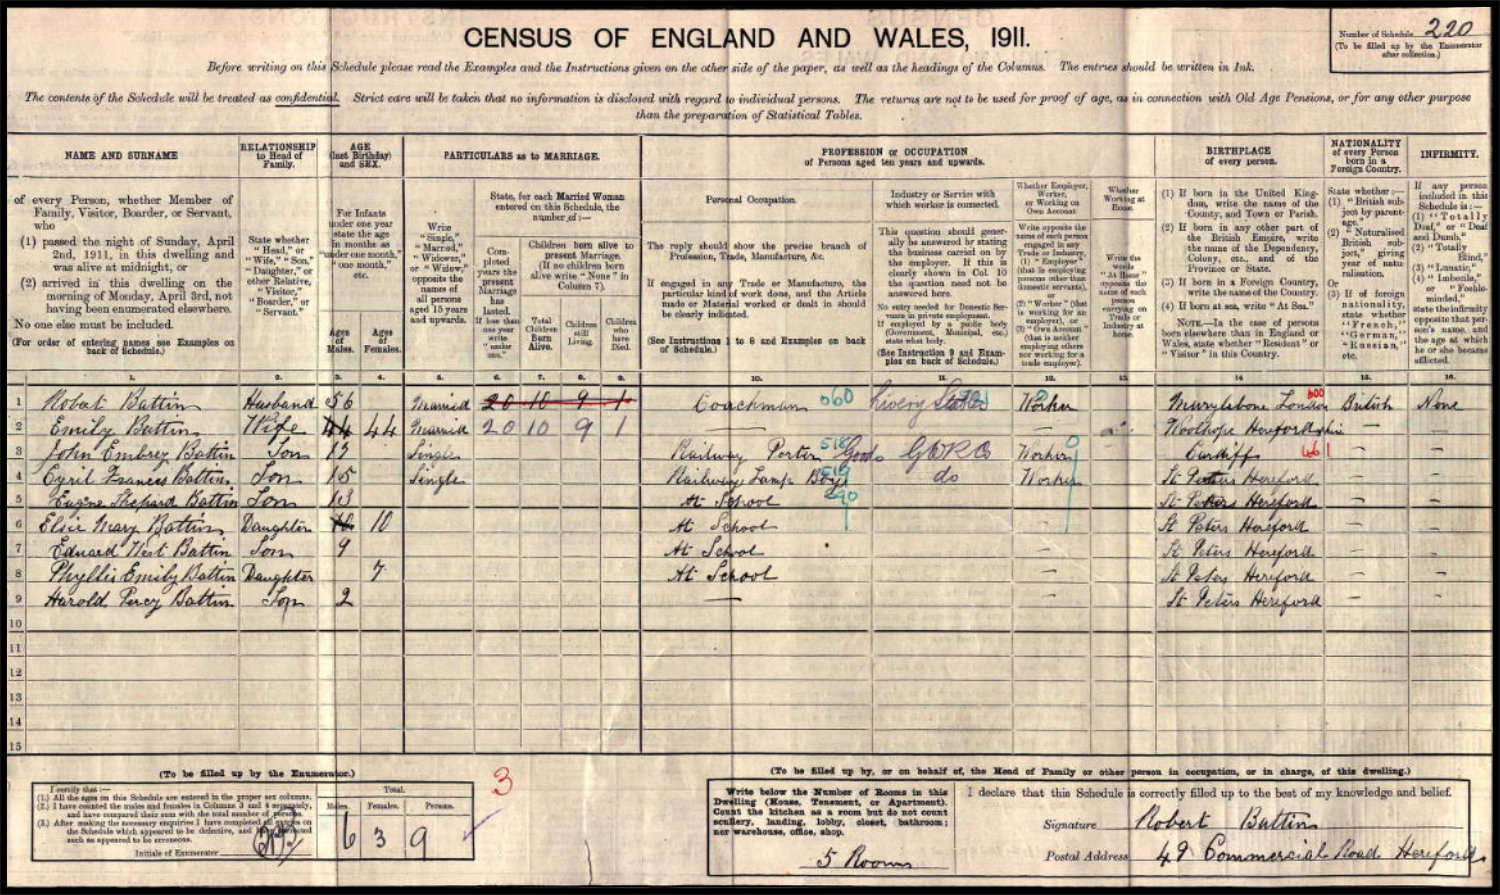 CENSUS OF ENGLAND AND WALES, 1911.
Number of Schedule 220
(To be filled up by the Enumerator after collection.)
Before writing on this Schedule please read the Examples and the Instructions given on the other side of the paper, as well as the headings of the Columns. The entries should be written in Ink.
The contents of the Schedule will be treated as confidential. Strict care will be taken that no information is disclosed with regard to individual persons. The returns are not to be used for proof of age, as in connection with Old Age Pensions, or for any other purpose
than the preparation of Statistical Tables.
NAME AND SURNAME
RELATIONSHIP to Head of Family.
AGE (last Birthday) and SEX.
PARTICULARS as to MARRIAGE.
PROFESSION or OCCUPATION of Persons aged ten years and upwards.
BIRTHPLACE of every person.
NATIONALITY of every Person born in a Foreign Country.
INFIRMITY.
of every Person, whether Member of
Family, Visitor, Boarder, or Servant,
who
(1) passed the night of Sunday, April
2nd, 1911, in this dwelling and
was alive at midnight, or
(2) arrived in this dwelling on the
morning of Monday, April 3rd, not
having been enumerated elsewhere.
No one else must be included.
(For order of entering names see Examples on
back of Schedule.)
State whether
"Head," or
"Wife," "Son,"
"Daughter," or
other Relative,
"Visitor,"
"Boarder," or
"Servant."
For Infants
under one year
state the age
in months as
"under one month,"
"one month,"
etc.
Ages of Males.
Ages of Females.
Write
"Single,"
"Married,"
"Widower,"
or "Widow,"
opposite the
names of
all persons
aged 15 years
and upwards.
State, for each Married Woman
entered on this Schedule, the
number of :—
Completed years the present Marriage has lasted. If less than one year write "under one."
Children born alive to
present Marriage.
(If no children born
alive write "None" in
Column 7).
Total Children Born Alive.
Children still Living.
Children who have Died.
Personal Occupation.
The reply should show the precise branch of
Profession, Trade, Manufacture, &c.
If engaged in any Trade or Manufacture, the
particular kind of work done, and the Article
made or Material worked or dealt in should
be clearly indicated.
(See Instructions 1 to 8 and Examples on back
of Schedule.)
Industry or Service with
which worker is connected.
This question should gener-
ally be answered by stating
the business carried on by
the employer. If this is
clearly shown in Col. 10
the question need not be
answered here.
No entry needed for Domestic Ser-
vants in private employment.
If employed by a public body
(Government, Municipal, etc.)
state what body.
(See Instruction 9 and Exam-
ples on back of Schedule.)
Whether Employer, Worker, or Working on Own Account
Write opposite the
name of each person
engaged in any
Trade or Industry,
(1) "Employer"
(that is employing
persons other than
domestic servants),
or
(2) "Worker" (that
is working for an
employer), or
(3) "Own Account"
(that is neither
employing others
nor working for a
trade employer).
Whether Working at Home.
Write the
words
"At Home"
opposite the
name of each
person
carrying on
Trade or
Industry at
home.
(1) If born in the United King-
dom, write the name of the
County, and Town or Parish.
(2) If born in any other part of
the British Empire, write
the name of the Dependency,
Colony, etc., and of the
Province or State.
(3) If born in a Foreign Country,
write the name of the Country.
(4) If born at sea, write "At Sea."
NOTE.—In the case of persons
born elsewhere than in England or
Wales, state whether "Resident" or
"Visitor" in this Country.
State whether :—
(1) "British sub-
ject by parent-
age."
(2) "Naturalised
British sub-
ject," giving
year of natu-
ralisation.
Or
(3) If of foreign
nationality,
state whether
"French,"
"German,"
"Russian,"
etc.
If any person
included in this
Schedule is :—
(1) "Totally
Deaf," or "Deaf
and Dumb,"
(2) "Totally
Blind,"
(3) "Lunatic,"
(4) "Imbecile,"
or "Feeble-
minded,"
state the infirmity
opposite that per-
son's name, and
the age at which
he or she became
afflicted.
1. 2. 3. 4. 5. 6. 7. 8. 9. 10. 11. 12. 13. 14 15. 16.
1 Robert Battin Husband 56 Married 20 10 9 1 Coachman 060 Livery Stable Worker Marylebone London 600 British None
2 Emily Battin Wife 44 44 Married 20 10 9 1 — Woolhope Herefordshire — —
3 John Embrey Battin Son Single Railway Porter Goods GWRCo Worker Cardiff 461 — —
4 Cyril Frances Battin Son 15 Single Railway Lamp Boy do Worker St Peters Hereford — —
5 Eugene Shephard Battin Son 13 At School St Peters Hereford — —
6 Elsie Mary Battin Daughter 10 10 At School St Peters Hereford — —
7 Edward West Battin Son 9 At School — St Peters Hereford — —
8 Phyllis Emily Battin Daughter 7 At School — St Peters Hereford — —
9 Harold Percy Battin Son 2 — — St Peters Hereford — —
10
11
12
13
14
15
(To be filled up by the Enumerator.)
I certify that :—
(1.) All the ages on this Schedule are entered in the proper sex columns.
(2.) I have counted the males and females in Columns 3 and 4 separately,
and have compared their sum with the total number of persons.
(3.) After making the necessary enquiries I have completed all entries on
the Schedule which appeared to be defective, and have corrected
such as appeared to be erroneous.
Initials of Enumerator
Total.
Males. Females. Persons.
6 3 9
3
(To be filled up by, or on behalf of, the Head of Family or other person in occupation, or in charge, of this dwelling.)
Write below the Number of Rooms in this
Dwelling (House, Tenement, or Apartment).
Count the kitchen as a room but do not count
scullery, landing, lobby, closet, bathroom;
nor warehouse, office, shop.
5 Rooms
I declare that this Schedule is correctly filled up to the best of my knowledge and belief.
Signature Robert Battin
Postal Address 49 Commercial Road Hereford